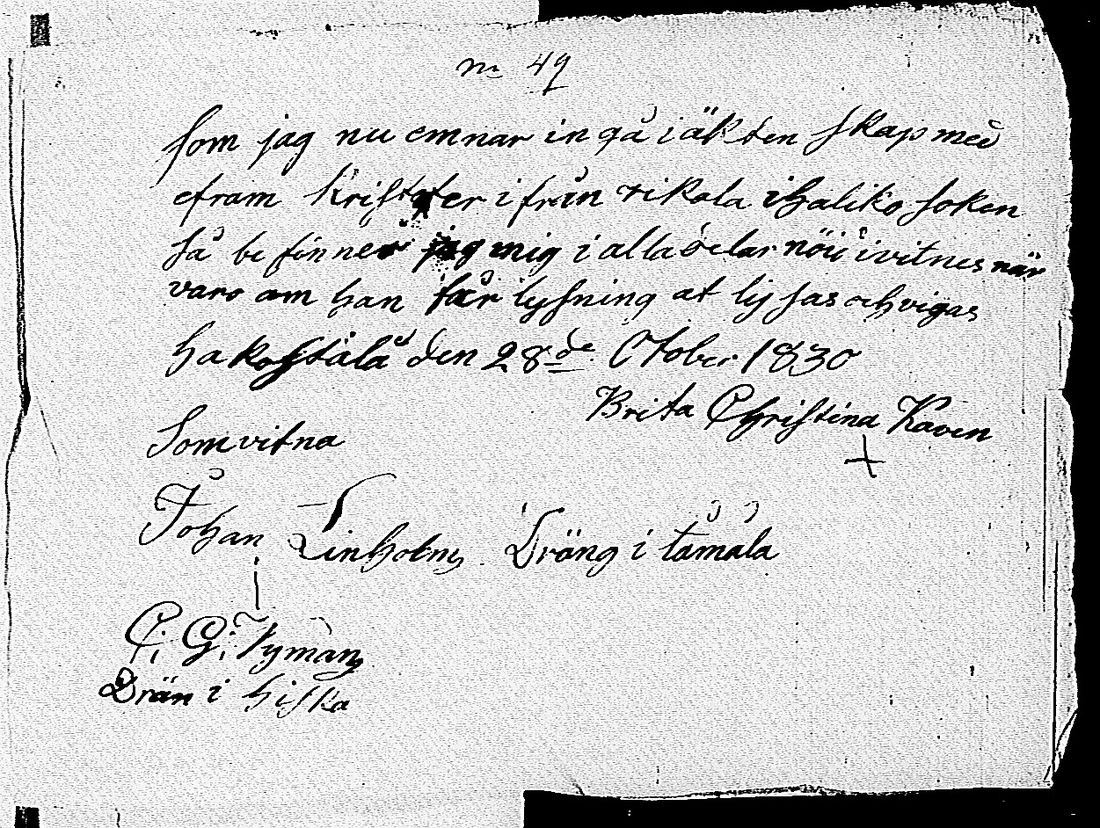 no 49
som jag nu emnar in gå i äkten skap med
efram Kristofer ifrån rikala i haliko soken
så be finner jag mig i alla delar nöid i vitnes när
varo om han får lysning at lysas och vigas
ha kostala den 28de October 1830
Brita Christina Kaven
Som vitna
Johan Linholm Dräng i tamala
C: G: Nyman
Drän i hiska